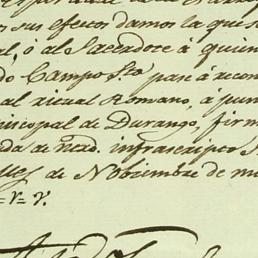 sus efectos damos la que s
al, ó al Sacerdote á quien
do Campo Sto pase á recon
al ritual Romano, á pun
iscopal de Durango, firm
da de necd. infrascripto
de Nobiembre de m
=r= r.